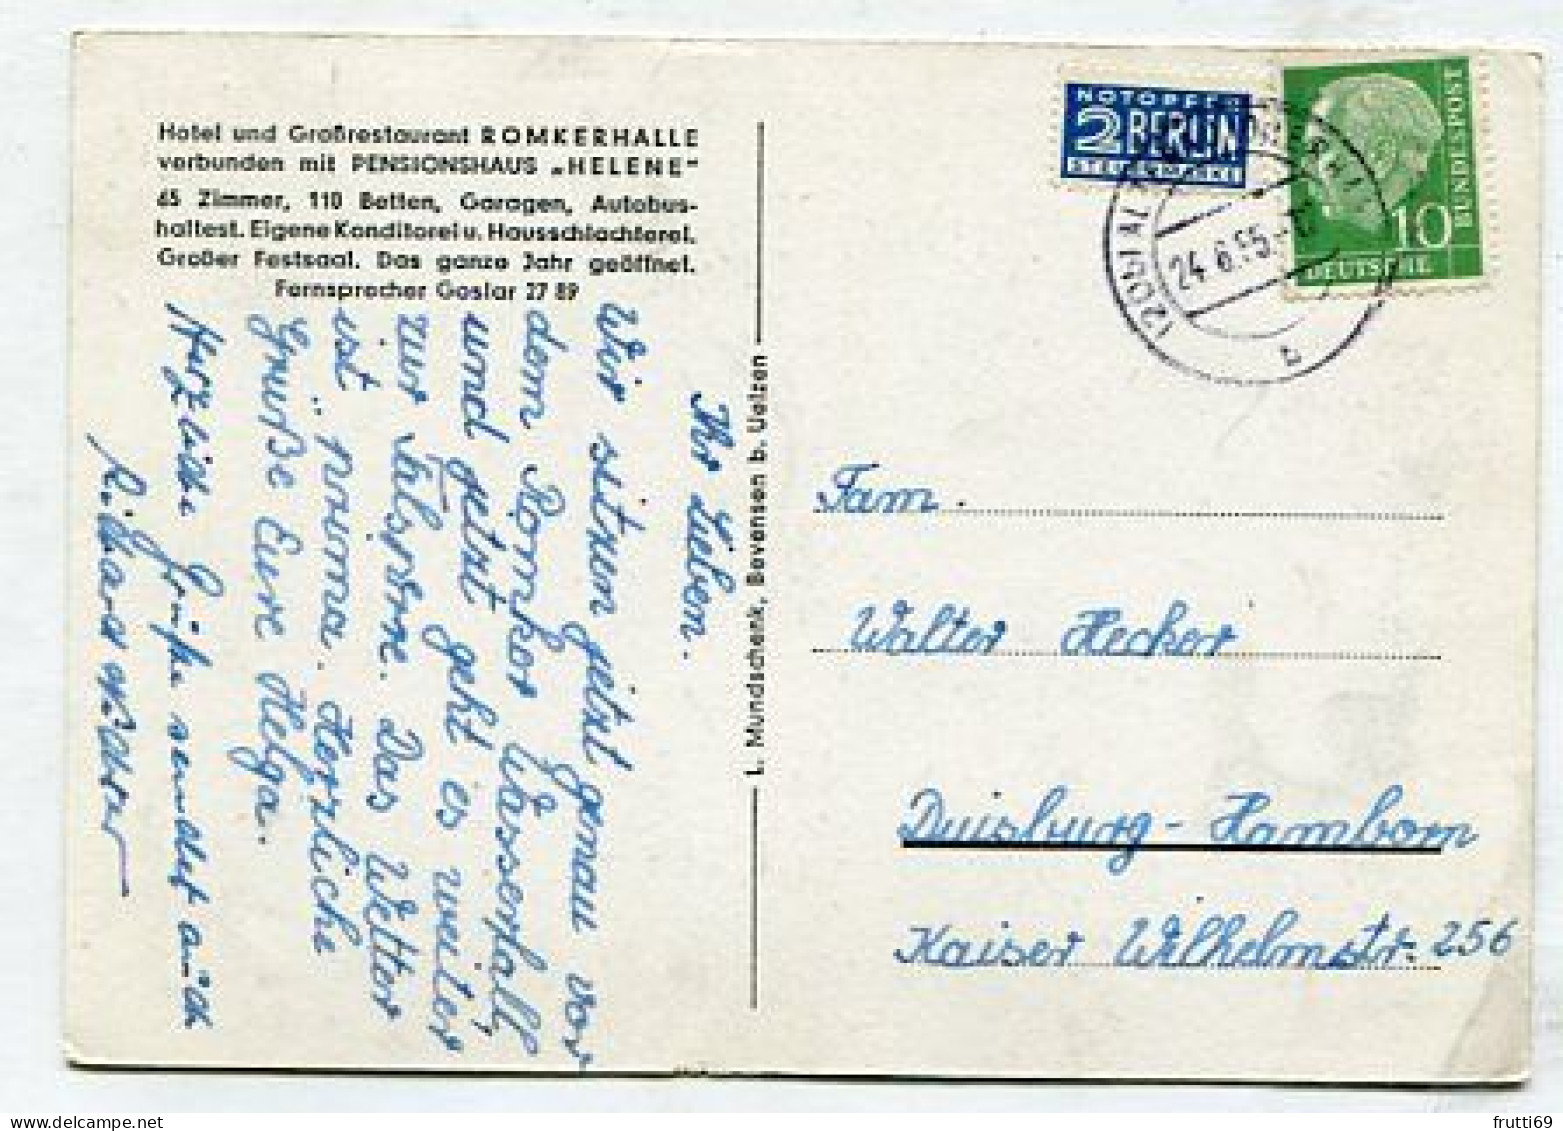 Hotel und Großrestaurant ROMKERHALLE
verbunden mit PENSIONSHAUS „HELENE"
65 Zimmer, 110 Betten, Garagen, Autobus-
haltest. Eigene Konditorei u. Hausschlachterei.
Großer Festsaal. Das ganze Jahr geöffnet.
Fernsprecher Goslar 27 89
Ihr Lieben.
Wir sitzen jetzt genau vor
dem Romker Wasserfall,
und jetzt geht es weiter
zur Talsperre. Das Wetter
ist prima. Herzliche
Grüße Eure Helga.
Herzliche Grüße sendet auch
Richard
L. Mundschenk, Bevensen b. Uelzen
NOTOPFER
2 BERLIN
STEUERMARKE
10
DEUTSCHE
BUNDESPOST
(20b)
24.6.55
b
Fam.
Walter Hecker
Duisburg-Hamborn
Kaiser Wilhelmstr. 256
frutti69